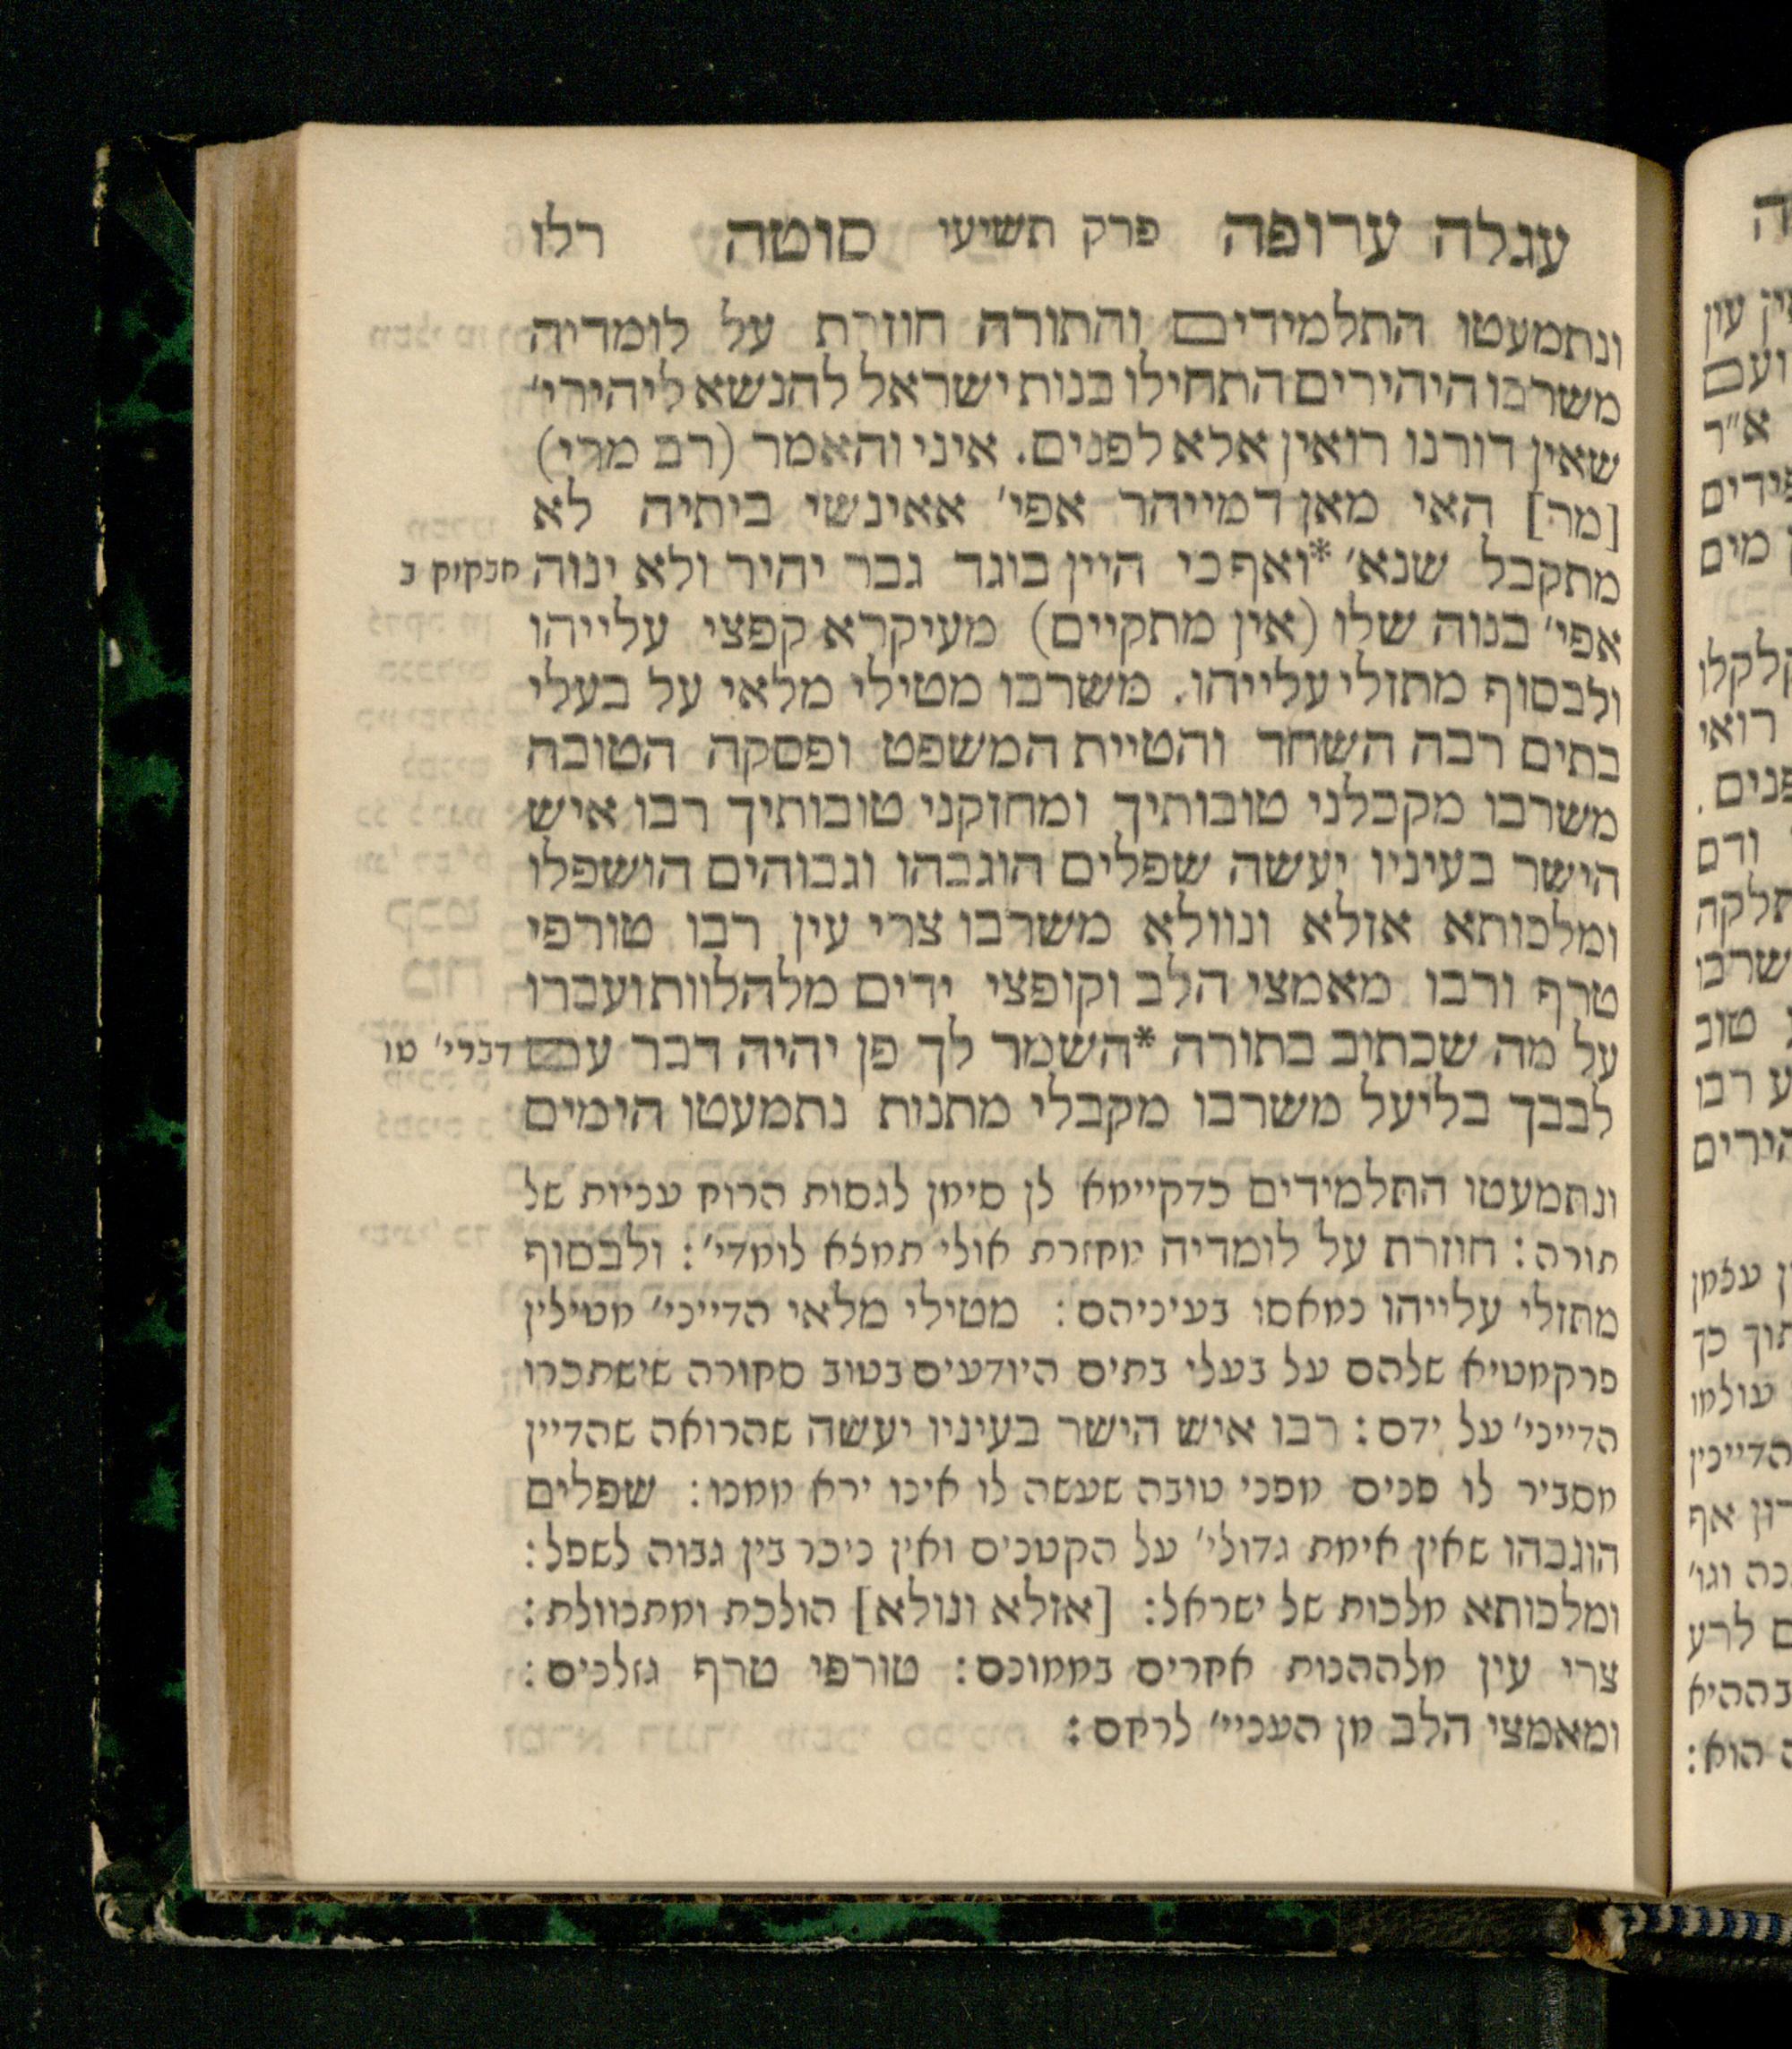 עגלה ערופה פרק תשיעי סוטה רלו
ונתמעטו התלמידים והתורה חוזרת על לומדיה
משרבו היהירים התחילו בנות ישראל להנשא ליהירי׳
שאין דורנו רואין אלא לפנים. איני והאמר (רב מרי)
[מר] האי מאן דמייהר אפי׳ אאינשי ביתיה לא
מתקבל שנא׳ *ואף כי היין בוגד גבר יהיר ולא ינוה
חבקוק ב
אפי׳ בנוה שלו (אין מתקיים) מעיקרא קפצי עלייהו
ולבסוף מתזלי עלייהו. משרבו מטילי מלאי על בעלי
בתים רבה השחד והטיית המשפט ופסקה הטובה
משרבו מקבלני טובותיך ומחזקני טובותיך רבו איש
הישר בעיניו יעשה שפלים הוגבהו וגבוהים הושפלו
ומלכותא אזלא ונוולא משרבו צרי עין רבו טורפי
טרף ורבו מאמצי הלב וקופצי ידים מלהלוות ועברו
על מה שכתוב בתורה *השמר לך פן יהיה דבר עם
דברי׳ טו
לבבך בליעל משרבו מקבלי מתנות נתמעטו הימים
ונתמעטו התלמידים כדקיימא לן סימן לגסות הרוח עניות של
תורה: חוזרת על לומדיה מחזרת אולי תמצא לומדי׳: ולבסוף
מתזלי עלייהו נמאסו בעיניהם: מטילי מלאי הדייני׳ מטילין
פרקמטיא שלהם על בעלי בתים היודעים בטוב סחורה שישתכרו
הדייני׳ על ידם: רבו איש הישר בעיניו יעשה שהרואה שהדיין
מסביר לו פנים מפני טובה שעשה לו אינו ירא ממנו: שפלים
הוגבהו שאין אימת גדולי׳ על הקטנים ואין ניכר בין גבוה לשפל:
ומלכותא מלכות של ישראל: [אזלא ונולא] הולכת ומתנוולת:
צרי עין מלההנות אחרים בממונם: טורפי טרף גזלנים:
ומאמצי הלב מן העניי׳ לרחם: